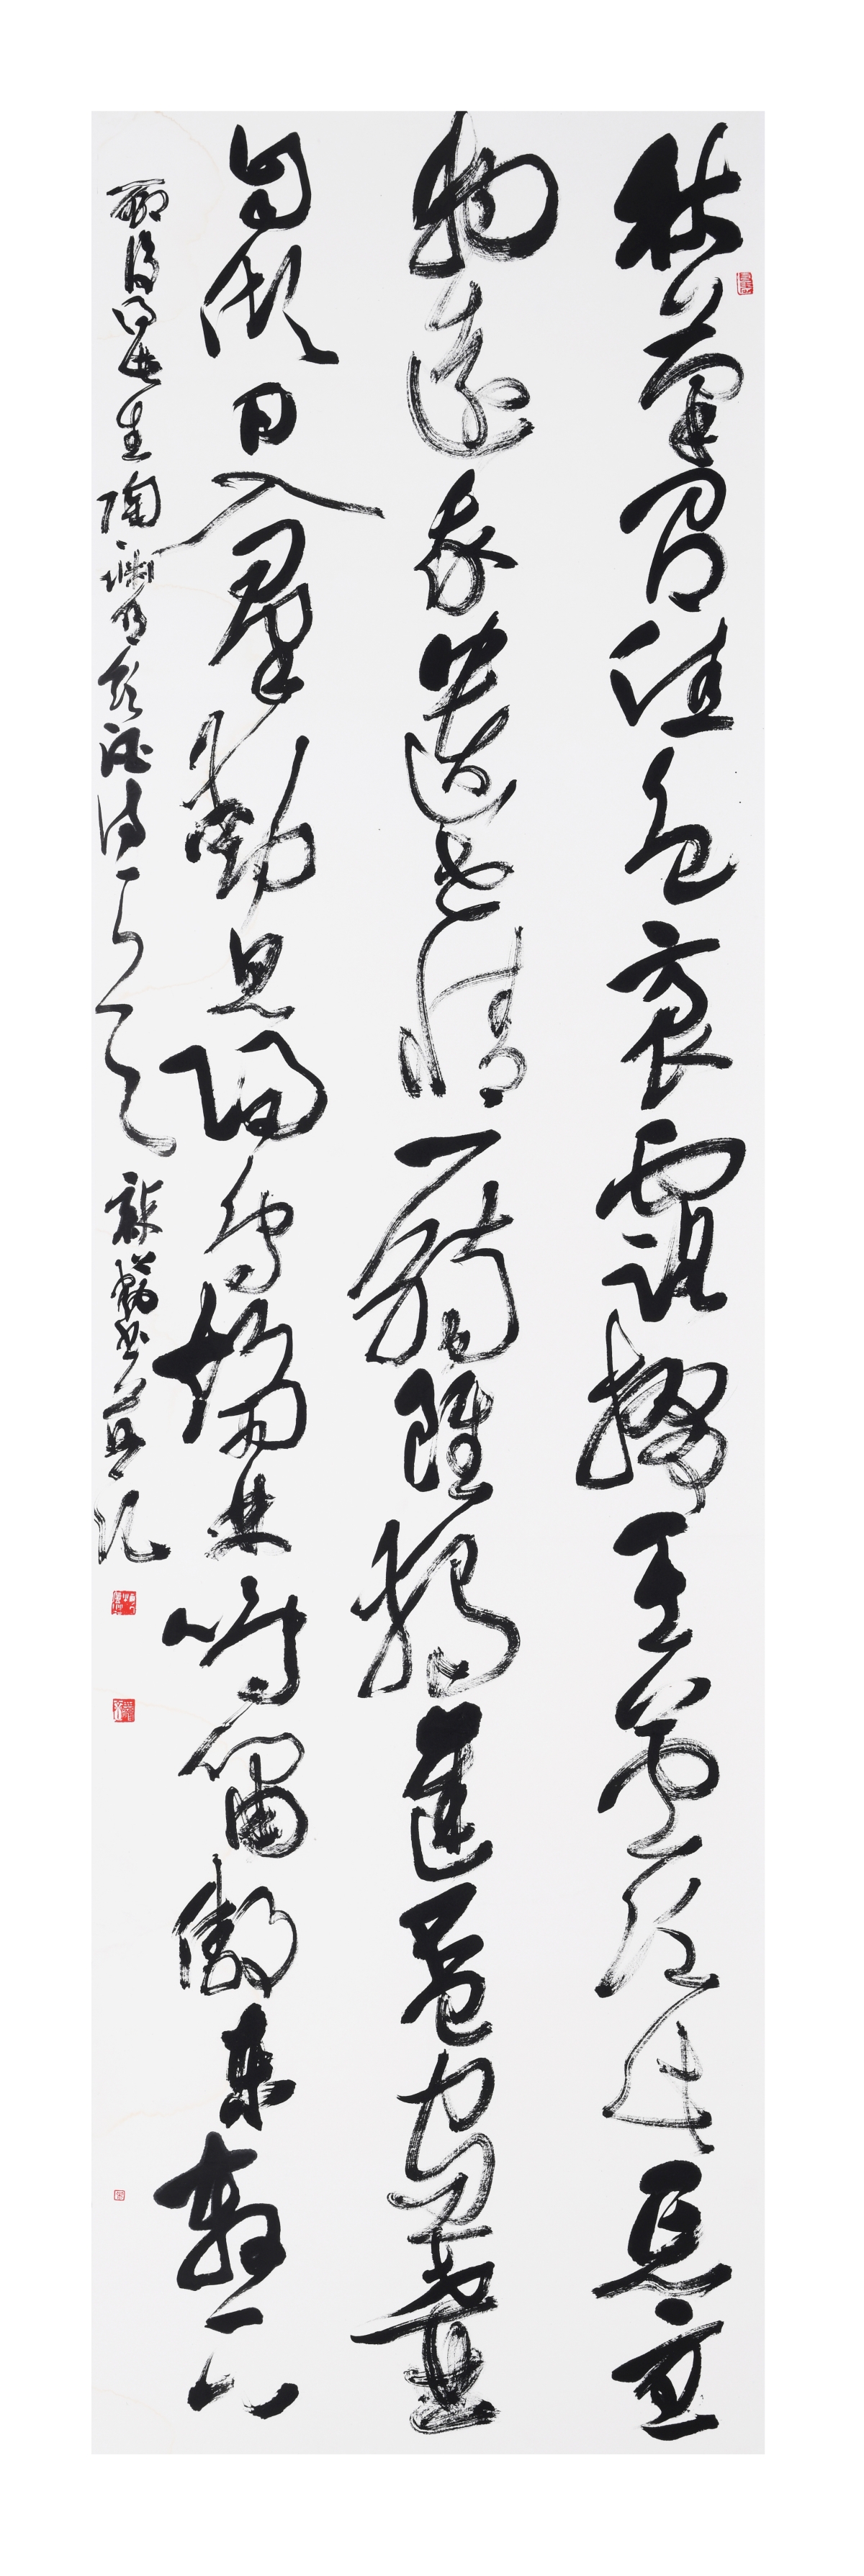 秋菊有佳色裛露掇其英泛此忘憂
物遠我遺世情一觴雖獨進盃盡壺
自傾日入群動息歸鳥趨林鳴嘯傲東軒下
聊復得此生陶淵明飲酒詩書並記